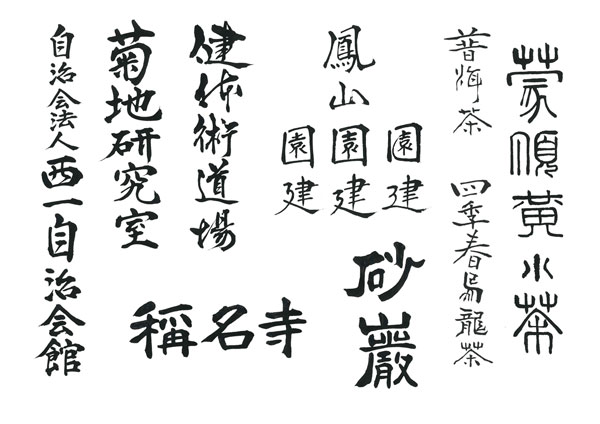 蒙頂黄小茶
普洱茶
四季春烏龍茶
園建
鳳山園建
園建
砂巌
健体術道場
菊地研究室
稱名寺
自治会法人西一自治会館